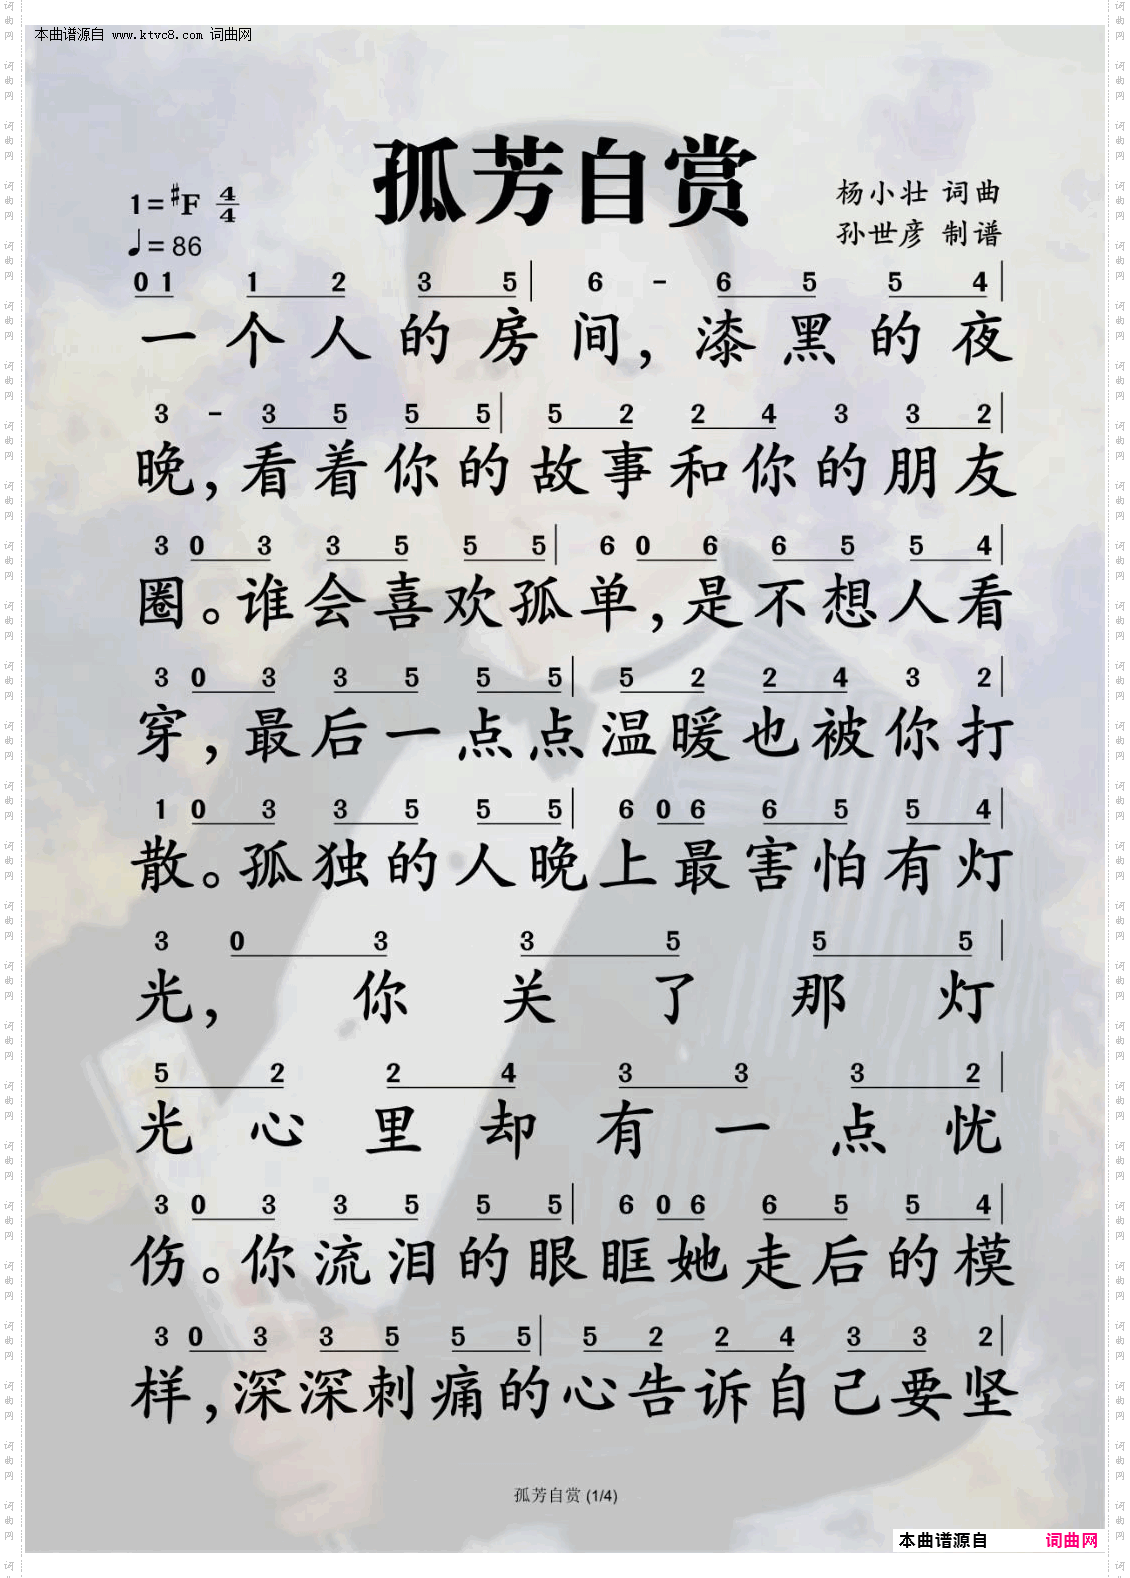 本曲谱源自 www.ktvc8.com 词曲网
孤芳自赏
1=♯F 4/4
♩=86
杨小壮 词曲
孙世彦 制谱
0 1 1 2 3 5 | 6 - 6 5 5 4 |
一个人的房间，漆黑的夜
3 - 3 5 5 5 | 5 2 2 4 3 3 2 |
晚，看着你的故事和你的朋友
3 0 3 3 5 5 5 | 6 0 6 6 5 5 4 |
圈。谁会喜欢孤单，是不想人看
3 0 3 3 5 5 5 | 5 2 2 4 3 2 |
穿，最后一点点温暖也被你打
1 0 3 3 5 5 5 | 6 0 6 6 5 5 4 |
散。孤独的人晚上最害怕有灯
3 0 3 3 5 5 5 |
光，你关了那灯
5 2 2 4 3 3 3 2 |
光心里却有一点忧
3 0 3 3 5 5 5 | 6 0 6 6 5 5 4 |
伤。你流泪的眼眶她走后的模
3 0 3 3 5 5 5 | 5 2 2 4 3 3 2 |
样，深深刺痛的心告诉自己要坚
孤芳自赏 (1/4)
本曲谱源自 词曲网